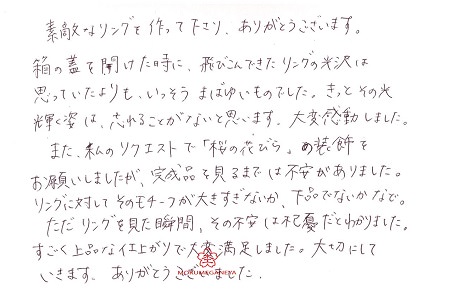 素敵なリングを作って下さり、ありがとうございます。
箱の蓋を開けた時に、飛びこんできたリングの光沢は
思っていたよりも、いっそうまばゆいものでした。きっとその光
輝く姿は、忘れることがないと思います。大変感動しました。
また、私のリクエストで「桜の花びら」の装飾を
お願いしましたが、完成品を見るまでは不安がありました。
リングに対してそのモチーフが大きすぎないか、下品でないかなど。
ただリングを見た瞬間、その不安は杞憂だとわかりました。
すごく上品な仕上がりで大変満足しました。大切にして
いきます。ありがとうございました。
MOKUMEGANEYA